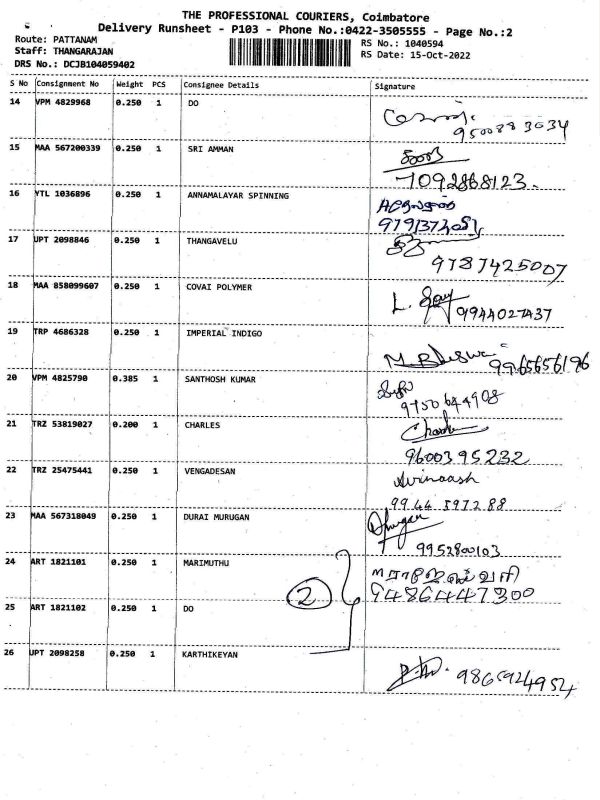 THE PROFESSIONAL COURIERS, Coimbatore
Delivery Runsheet - P103 - Phone No.:0422-3505555 - Page No.:2
Route: PATTANAM
Staff: THANGARAJAN
DRS No.: DCJB104059402
RS No.: 1040594
RS Date: 15-Oct-2022
S No Consignment No Weight PCS Consignee Details Signature
14 VPM 4829968 0.250 1 DO
9500883034
15 MAA 567200339 0.250 1 SRI AMMAN
7092868123.
16 YTL 1036896 0.250 1 ANNAMALAYAR SPINNING
17 UPT 2098846 0.250 1 THANGAVELU
9787425007
18 MAA 858099607 0.250 1 COVAI POLYMER
L. 9944027437
19 TRP 4686328 0.250 1 IMPERIAL INDIGO
9965656196
20 VPM 4825790 0.385 1 SANTHOSH KUMAR
9750644908
21 TRZ 53819027 0.200 1 CHARLES
9600395232
22 TRZ 25475441 0.250 1 VENGADESAN
Avinaash
99444 397288
23 MAA 567318049 0.250 1 DURAI MURUGAN
9952800103
24 ART 1821101 0.250 1 MARIMUTHU
9486447300
2
25 ART 1821102 0.250 1 DO
26 UPT 2098258 0.250 1 KARTHIKEYAN
9865924954